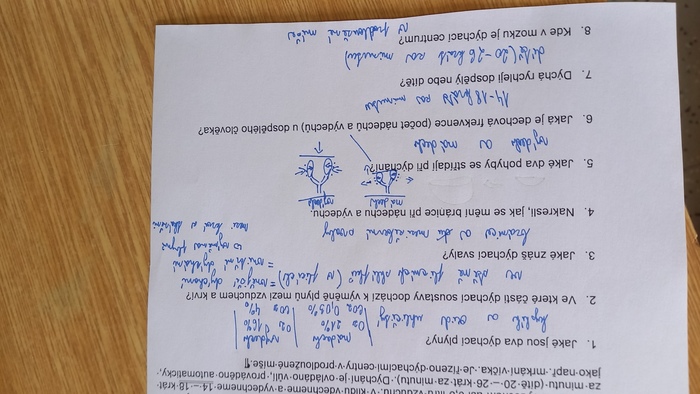 za minutu (dítě 20 – 26 krát za minutu). Dýchání je ovládáno vůlí, prováděno automaticky,
jako např. mrkání víčka. Je řízeno dýchacími centry v prodloužené míše.¶
1. Jaké dva jsou dýchací plyny?
kyslík a oxid uhličitý
nádech výdech
O2 21% O2 16%
CO2 0,03% CO2 4%
2. Ve které části dýchací soustavy dochází k výměně plynů mezi vzduchem a krví?
(v plicích) = vnější dýchání
= vnitřní dýchání
3. Jaké znáš dýchací svaly?
bránice a mezižeberní svaly
4. Nakresli, jak se mění bránice při nádechu a výdechu.
nádech výdech
5. Jaké dva pohyby se střídají při dýchání?
výdech a nádech
6. Jaká je dechová frekvence (počet nádechů a výdechů) u dospělého člověka?
14-18 krát za minutu
7. Dýchá rychleji dospělý nebo dítě?
dítě (20-26 krát za minutu)
8. Kde v mozku je dýchací centrum?
v prodloužené míše